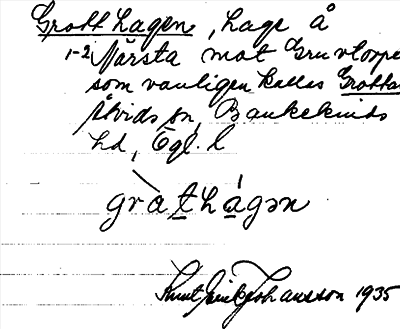 Grott hagen, hage å
1-2 Närsta mot Gruvtorpe
som vanligen kallas Grottor
Åtvids sn, Bankekinds
hd, Ögl. l
gràthágən
Knut Johansson 1935